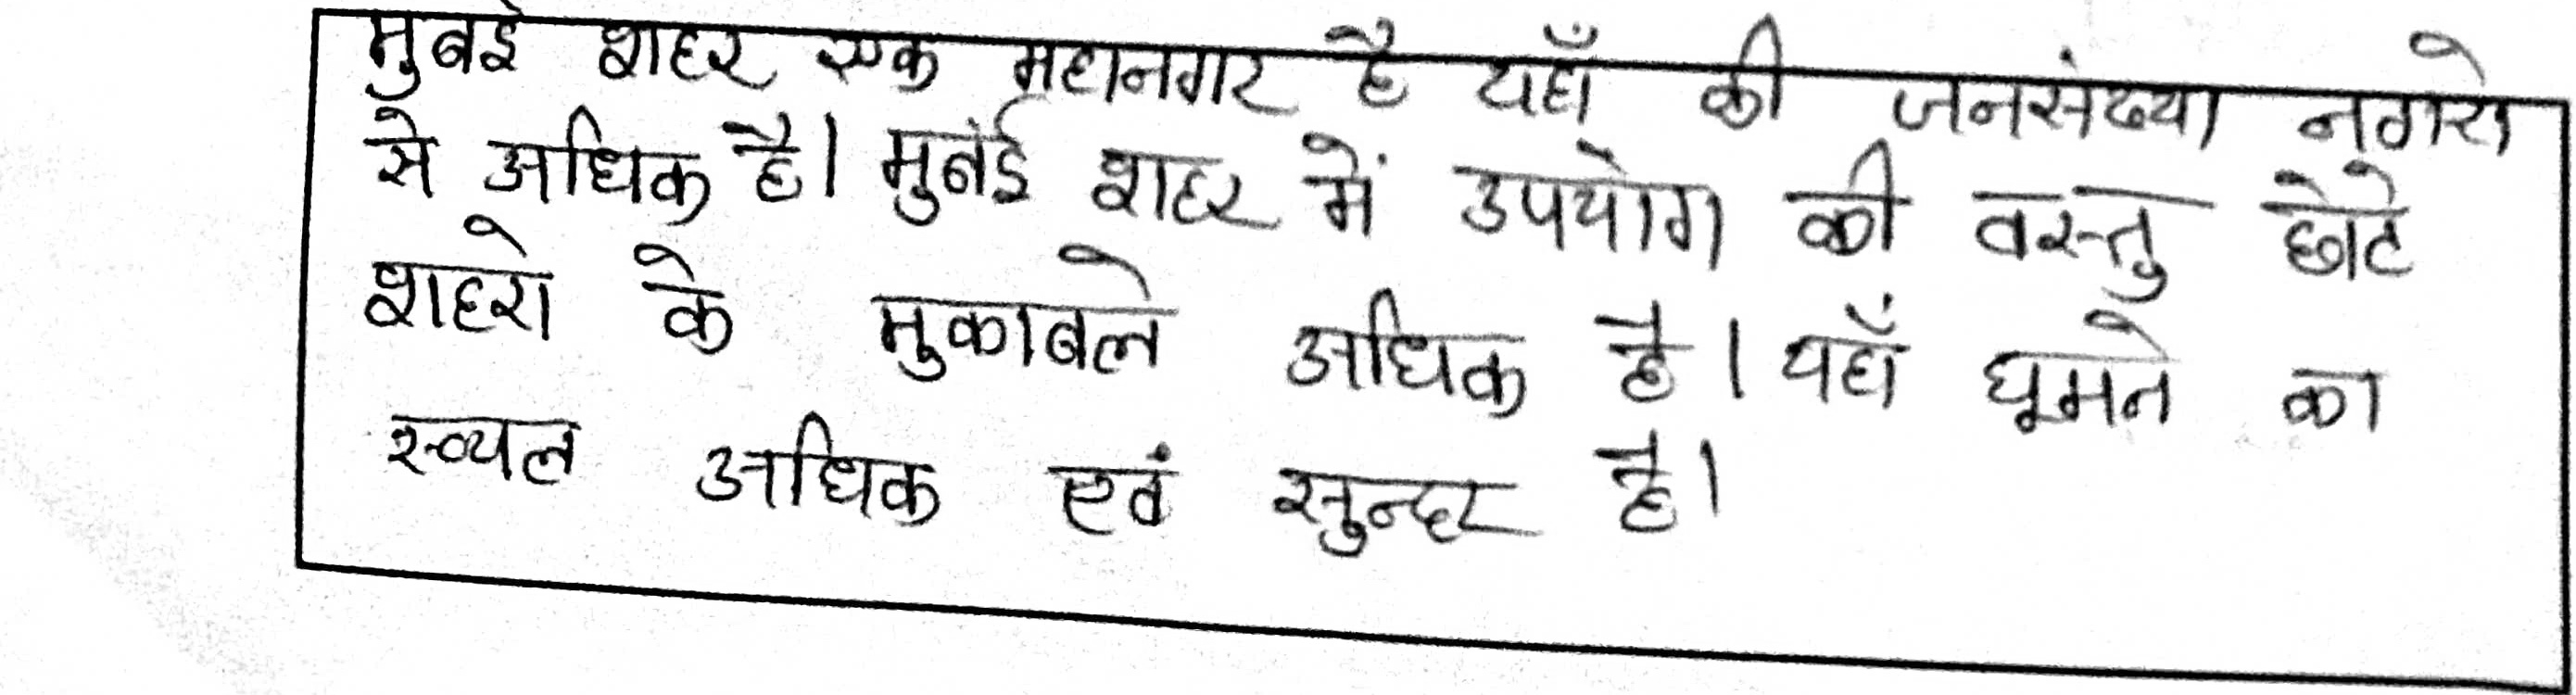 मुबई शहर एक महानगर है यहाँ की जनसंख्या नगरो
से अधिक है। मुबंई शहर में उपयोग की वस्तु छोटे
शहरो के मुकाबले अधिक है। यहाँ घूमने का
स्थल अधिक एवं सुन्दर है।